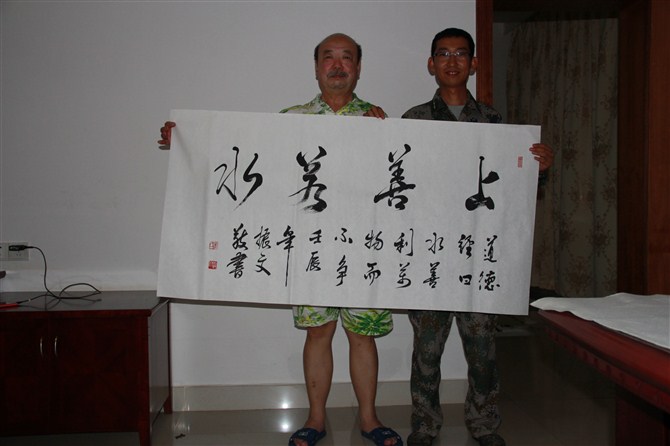 上善若水
道德
經曰
水善
利萬
物而
不争
壬辰
年
振文
敬書